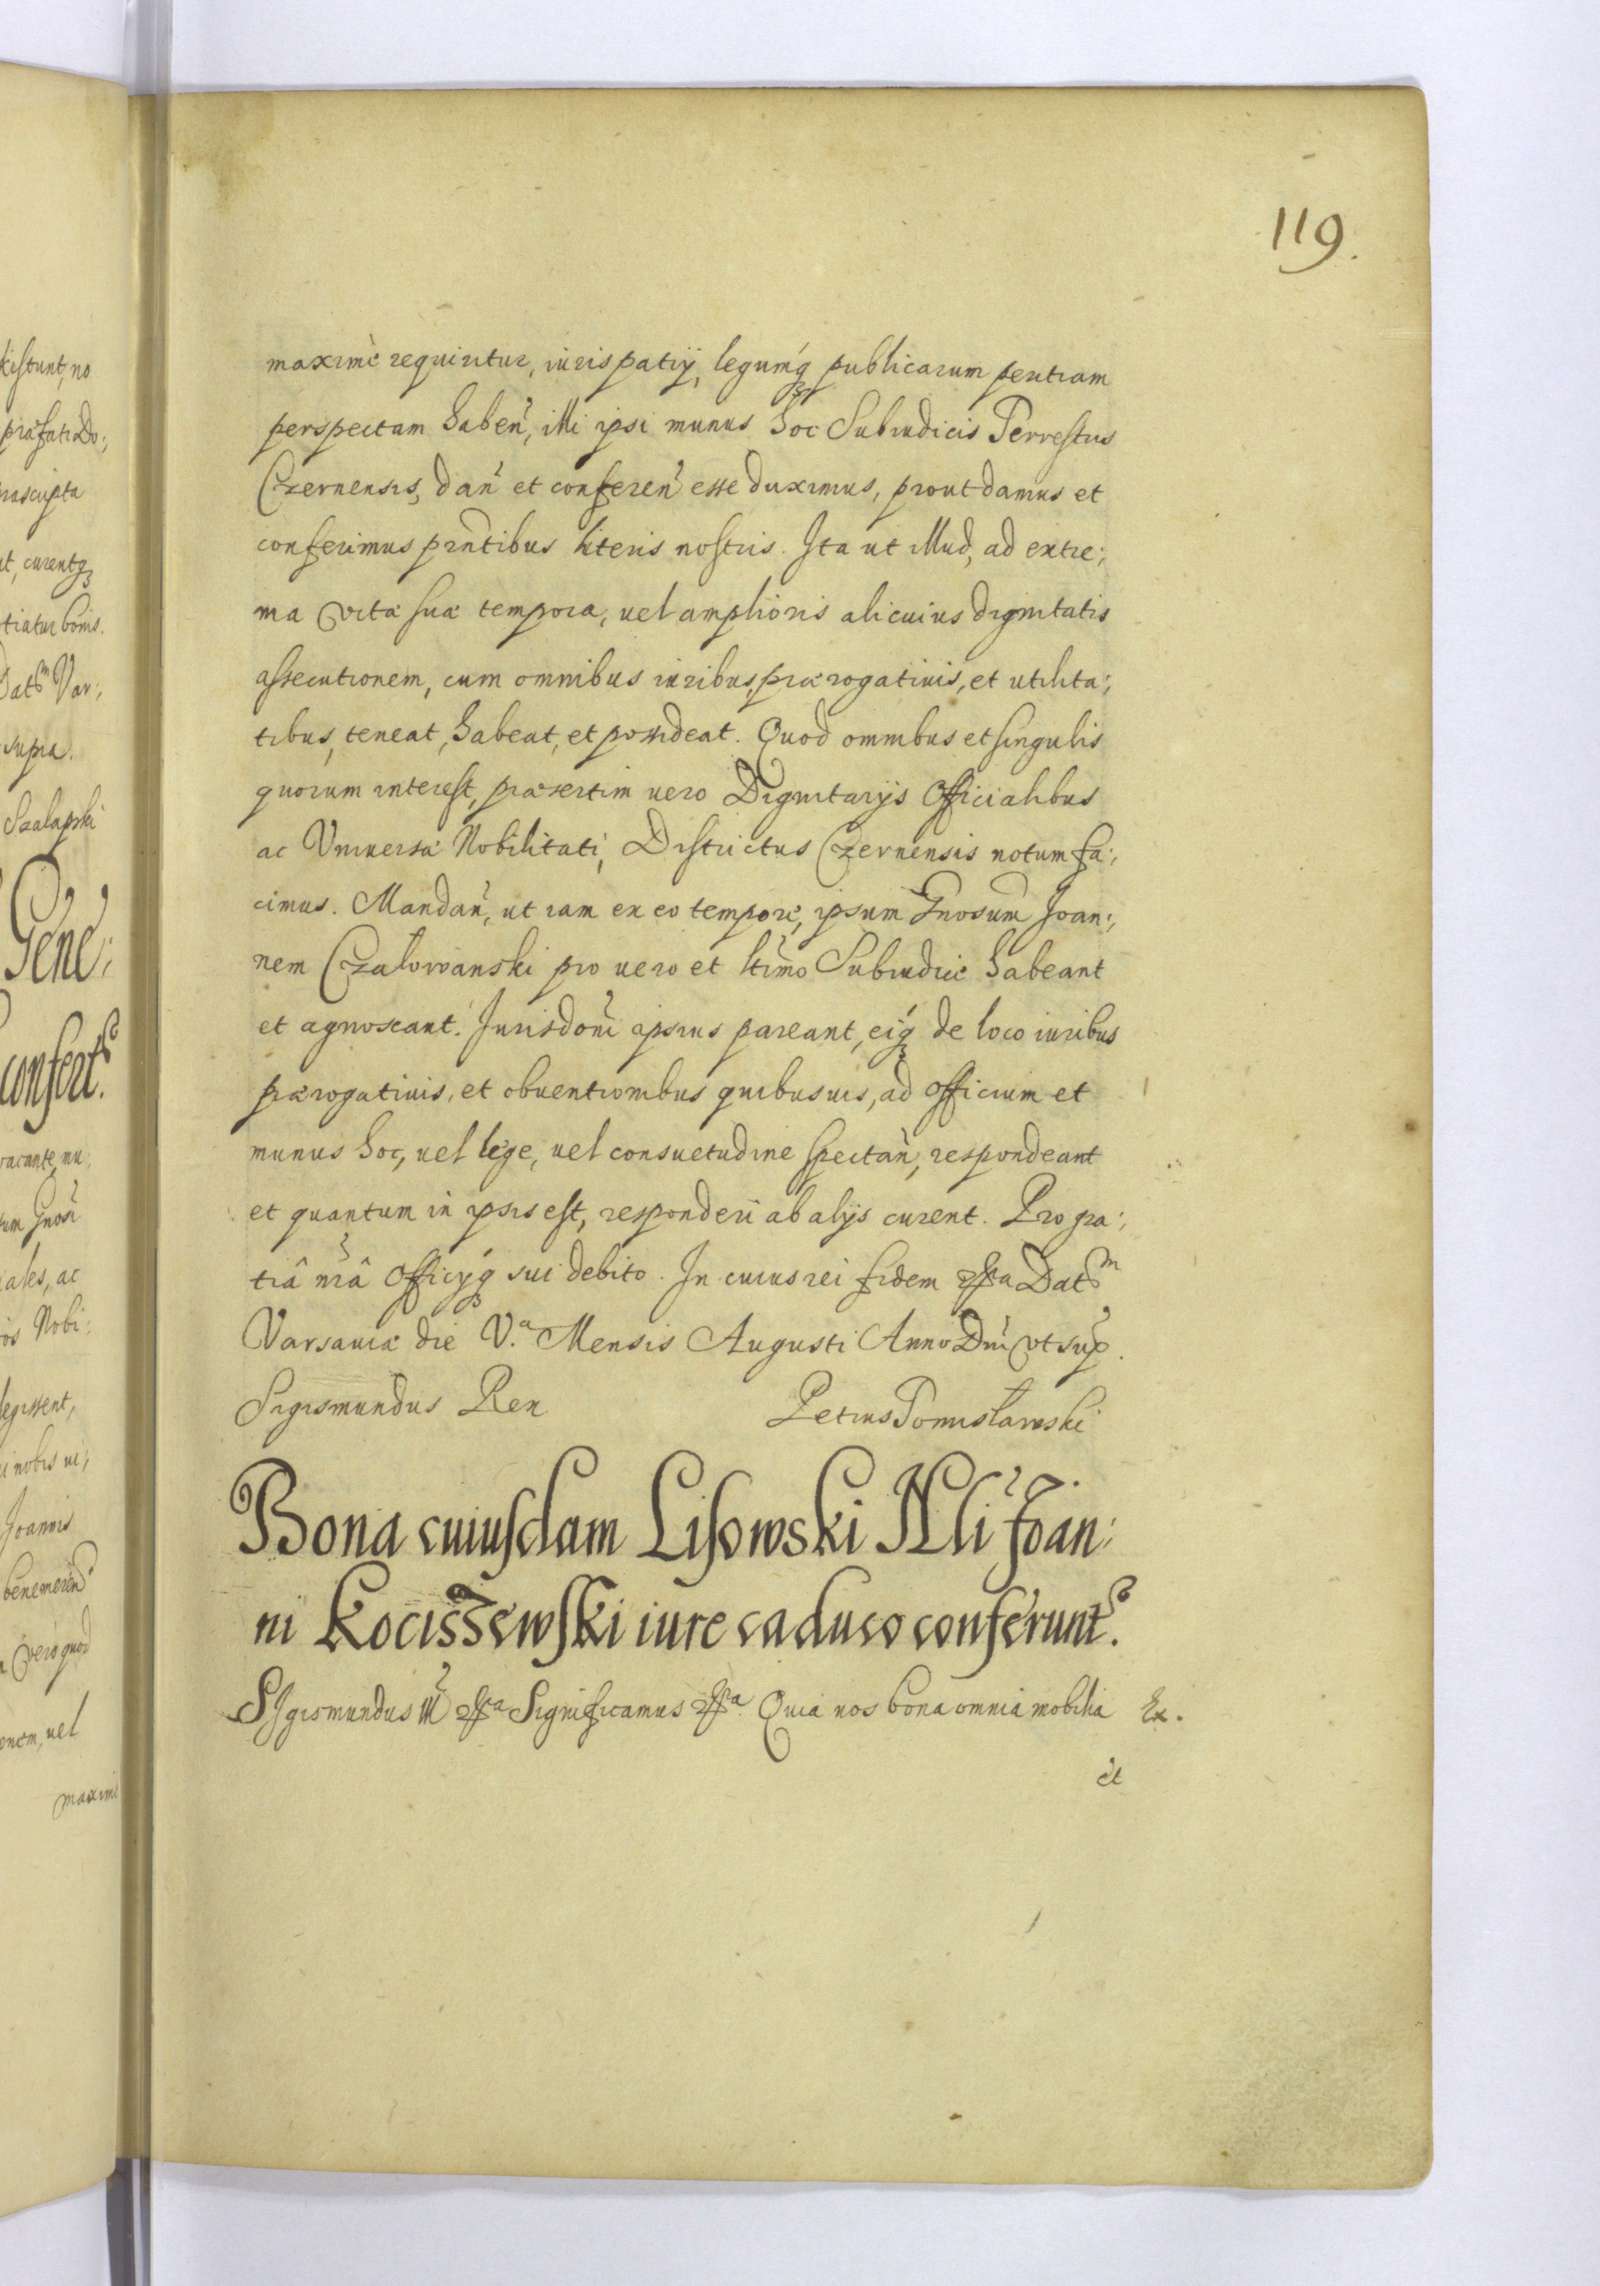 119.
maximè requiritur, iuris patrij, legumq́ publicarum peritiam
perspectam haben̄, illi ipsi munus hoc Subiudicis Terrestris
Czernensis, dan̄ et conferen̄ esse duximus, prout damus et
conferimus pr̄ntibus literis nostris. Ita ut illud, ad extre:
ma vitæ suæ tempora, uel amplioris alicuius dignitatis
assecutionem, cum omnibus iuribus, prærogatiuis, et utilita:
tibus, teneat, habeat, et possideat. Quod omnibus et singulis
quorum interest, præsertim uero Dignitarijs Officialibus
ac Vniuersæ Nobilitati, Districtus Czernensis notum fa:
cimus. Mandan̄, ut iam ex eo tempore, ipsum Gn̄osum Joan:
nem Czalowanski pro uero et ltīmo Subiudice habeant
et agnoscant. Jurisdon̄i ipsius pareant, eiq́ de loco iuribus
prærogatiuis, et obuentionibus quibusuis, ad officium et
munus hoc, uel lege, uel consuetudine spectan̄, respondeant
et quantum in ipsis est, responderi ab alijs curent. Pro gra:
tiâ n̄râ Officijq́ sui debito. In cuius rei fidem &a Datm
Varsauiæ die V.a Mensis Augusti Anno Dn̄i vt sup̄.
Sigismundus Rex Petrus Tomisławski
Bona cuiusdam Lisowski Nl̄i Joan:
ni Kociszewski iure caduco conferunt.
SJgismundus III &a Significamus &a Quia nos bona omnia mobilia Ex.
et